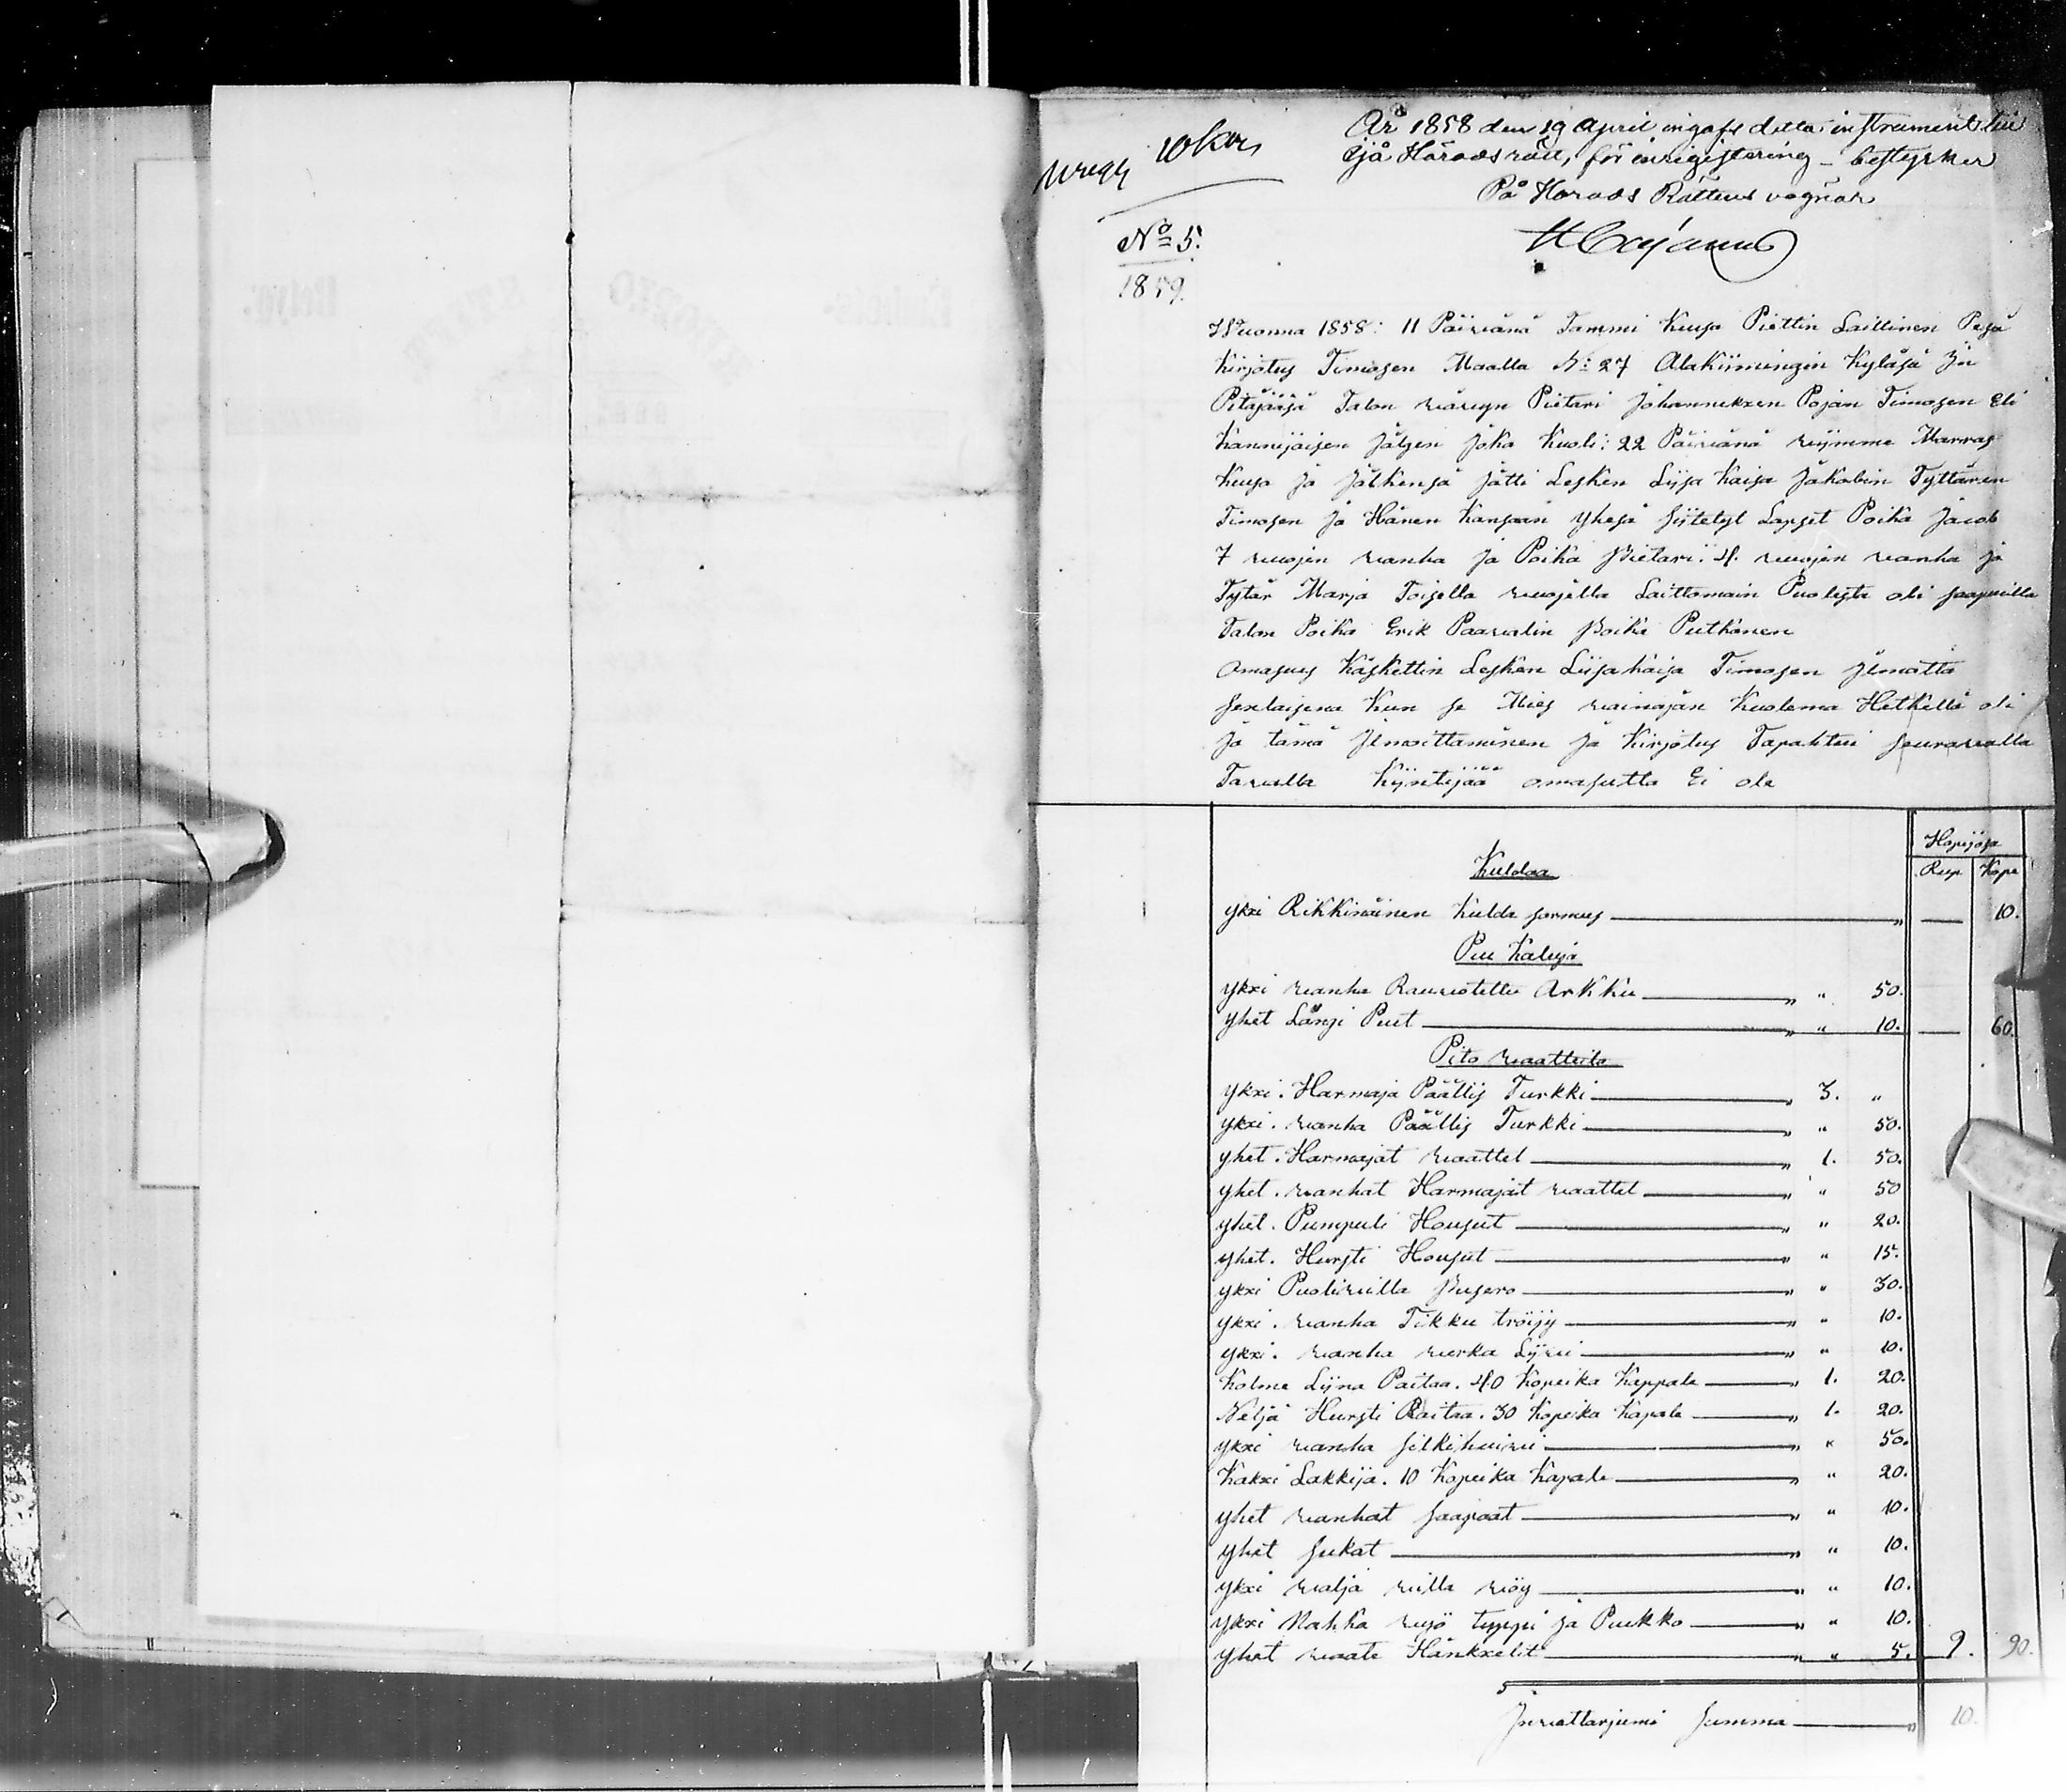 År 1858 den 19 April ingafs detta instrument till
Ijå Häradsrätt, för inregistering - bestyrker
På Härads Rättens vägnar
10 kop
No 5.
1859.
Wuonna 1858: 11 Päiwänä Tammi Kuusa Piettin Laillinen Pesä
Kirjotus Timosen Maalla N: 27 Alakiimingin Kyläsä Jin
Pitäjääsä Talon wäwyn Pietari Johanneksen Pojan Timosen Eli
Kannijaisen Jälgen Joka Kuoli: 22 Päiwänä wijmme Marras
Kuusa Ja Jälkensä Jätti Lesken Lijsa Kaisa Jakobin Tyttären
Timosen Ja Hänen Kansaan Yhesä siitetyt Lapset Poika Jacob
7 wuojen wanha Ja Poika Pietari. 4. wuojen wanha Ja
Tytär Marja Toisella wuojella Laittomain Puolesta oli saapuilla
Talon Poika Erik Paawalin Poika Putkonen
Omasuus Käskettin Lesken Liisakaisa Timosen Jlmotta
senlaisena Kun se Mies wainajan Kuolema Hetkellä oli
Ja tämä Jlmoittaminen Ja Kirjotus Tapahtui seurawalla
Tawalla Kijntejää omasutta Ei ole
Hopijosa
Rup Kope
Kuldaa
yxi Rikkinäinen Kulda sormus „ 10.
Puu Kaluja
yxi wanha Rauwotettu Arkku „ „ 50.
yhet Långi Puut „ „ 10. 60.
Pito waatteita
yxi. Harmaja Päällis Turkki „ 3. „
yxi. wanha Päällis Turkki „ „ 50.
yhet. Harmajat waattet „ 1. 50.
yhet. wanhat Harmajat waattet „ „ 50
yhet. Pumpuli Housut „ „ 20.
yhet. Hursti Housut „ „ 15.
yxi Puoliwilla Pusero „ „ 30.
yxi. wanha Tikku tröijy „ „ 10.
yxi. wanha werka Lijwi „ „ 10.
Kolme Lijna Paitaa. 40 Kopeika Kappale „ 1. 20.
Neljä Hursti Paitaa. 30 Kopeika Kapale „ 1. 20.
yxi wanha silkihuiwi „ „ 50.
Kaksi Lakkija. 10 Kopeika Kapale „ „ 20.
yhet wanhat saapaat „ „ 10.
yhet sukat „ „ 10.
yxi walja willa wöy „ „ 10.
yxi Nahka wyö tuppi ja Puukko „ „ 10.
yhet waate Hänkselit „ „ 5. 9. 90.
summa „ 10.